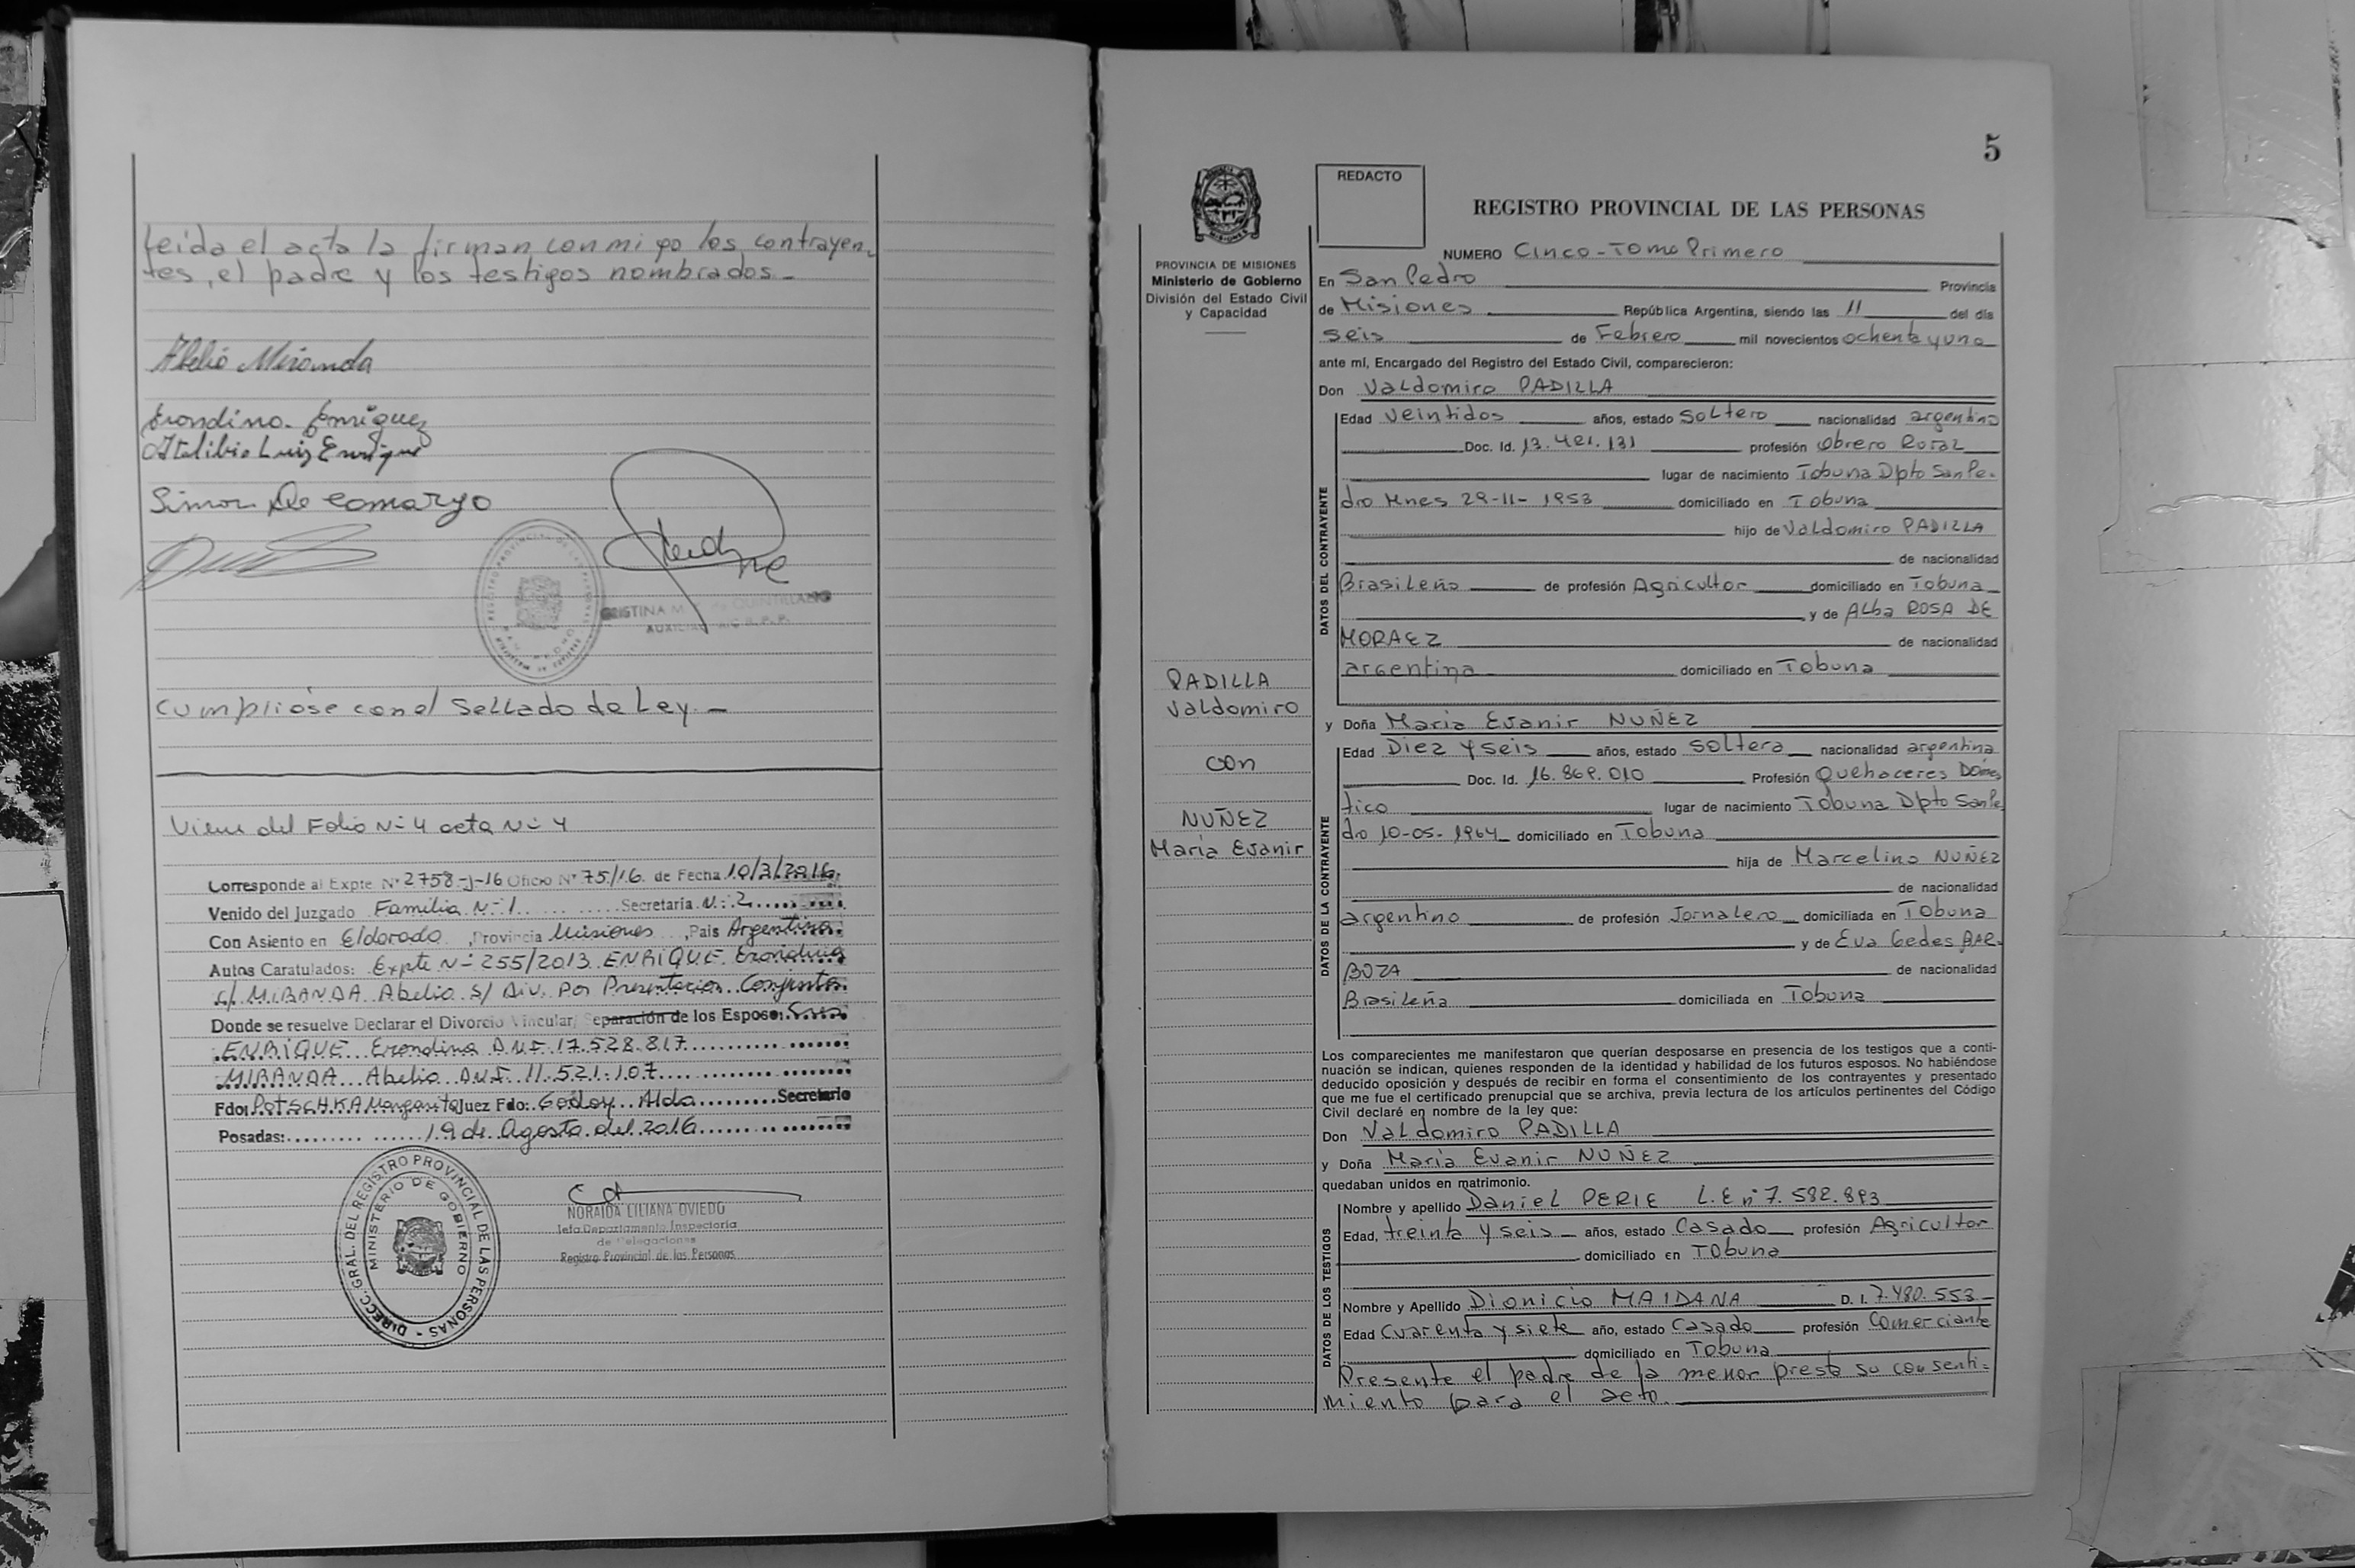 Leída el acta la firman conmigo los contrayen-
tes, el padre y los testigos nombrados-
Abelio Miranda
Erondina Enriquez
Atalibio Luiz Enrique
Simon De Comargo
REGISTRO PROVINCIAL DE LAS PERSONAS
CRISTINA M. de QUINTILLANO
AUXILIAR
Cumplióse con el Sellado de Ley.-
Viene del Folio N- 4 acta N- 4
Corresponde al Expte N° 2758-J-16 Oficio N° 75/16 de Fecha 10/3/2016
Venido del Juzgado Familia N- 1 Secretaria N- 2
Con Asiento en Eldorado, Provincia Misiones, Pais Argentina
Autos Caratulados: Expte N- 255/2013 ENRIQUE Erondina
c/ MIRANDA Abelio S/ Div. Por Presentacion Conjunta
Donde se resuelve Declarar el Divorcio Vincular/ Separación de los Esposos Sres
ENRIQUE Erondina D.N.I. 17.528.817
MIRANDA Abelio D.N.I. 11.521.107
Fdo: POTSCHKA Margarita Juez Fdo: Godoy Alda Secretario
Posadas: 19 de Agosto del 2016
DIRECC. GRAL. DEL REGISTRO PROVINCIAL DE LAS PERSONAS -
MINISTERIO DE GOBIERNO
NORAIDA LILIANA OVIEDO
Jefa Departamento Inspectoria
de Delegaciones
Registro Provincial de las Personas
5
MISIONES
PROVINCIA DE MISIONES
Ministerio de Gobierno
División del Estado Civil
y Capacidad
PADILLA
Valdomiro
con
NUÑEZ
María Evanir
REDACTO
REGISTRO PROVINCIAL DE LAS PERSONAS
NUMERO Cinco-Tomo Primero
En San Pedro Provincia
de Misiones República Argentina, siendo las 11 del día
seis de Febrero mil novecientos ochenta y uno
ante mí, Encargado del Registro del Estado Civil, comparecieron:
Don Valdomiro PADILLA
DATOS DEL CONTRAYENTE
Edad veintidos años, estado soltero nacionalidad argentino
Doc. Id. 13.421.131 profesión Obrero Rural
lugar de nacimiento Tobuna Dpto San Pe-
dro Mnes 29-11-1953 domiciliado en Tobuna
hijo de Valdomiro PADILLA
de nacionalidad
Brasileño de profesión Agricultor domiciliado en Tobuna
y de Alba ROSA DE
MORAEZ de nacionalidad
argentina domiciliado en Tobuna
y Doña María Evanir NUÑEZ
DATOS DE LA CONTRAYENTE
Edad Diez y seis años, estado soltera nacionalidad argentina
Doc. Id. 16.869.010 Profesión Quehaceres Domes
tico lugar de nacimiento Tobuna Dpto San Pe
dro 10-05-1964 domiciliado en Tobuna
hija de Marcelino NUÑEZ
de nacionalidad
argentino de profesión Jornalero domiciliada en Tobuna
y de Eva Gedes BAR-
BOZA de nacionalidad
Brasileña domiciliada en Tobuna
Los comparecientes me manifestaron que querían desposarse en presencia de los testigos que a conti-
nuación se indican, quienes responden de la identidad y habilidad de los futuros esposos. No habiéndose
deducido oposición y después de recibir en forma el consentimiento de los contrayentes y presentado
que me fue el certificado prenupcial que se archiva, previa lectura de los artículos pertinentes del Código
Civil declaré en nombre de la ley que:
Don Valdomiro PADILLA
y Doña María Evanir NUÑEZ
quedaban unidos en matrimonio.
DATOS DE LOS TESTIGOS
Nombre y apellido Daniel PERIE L.E n° 7.582.893
Edad, treinta y seis años, estado Casado profesión Agricultor
domiciliado en Tobuna
Nombre y Apellido Dionicio MAIDANA D. I. 7.480.553
Edad Cuarenta y siete año, estado Casado profesión Comerciante
domiciliado en Tobuna
Presente el padre de la menor presta su consenti-
miento para el acto.